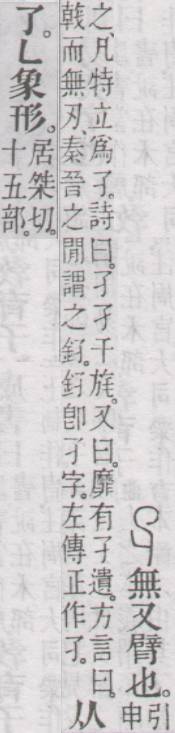 無又臂也。引申
之、凡特立爲孑。詩曰。孑孑干旄。又曰。靡有孑遺。方言曰。
戟而無刃、秦晉之閒謂之釨。釨卽孑字。左傳正作孑。从
了。乚象形。居桀切。
十五部。